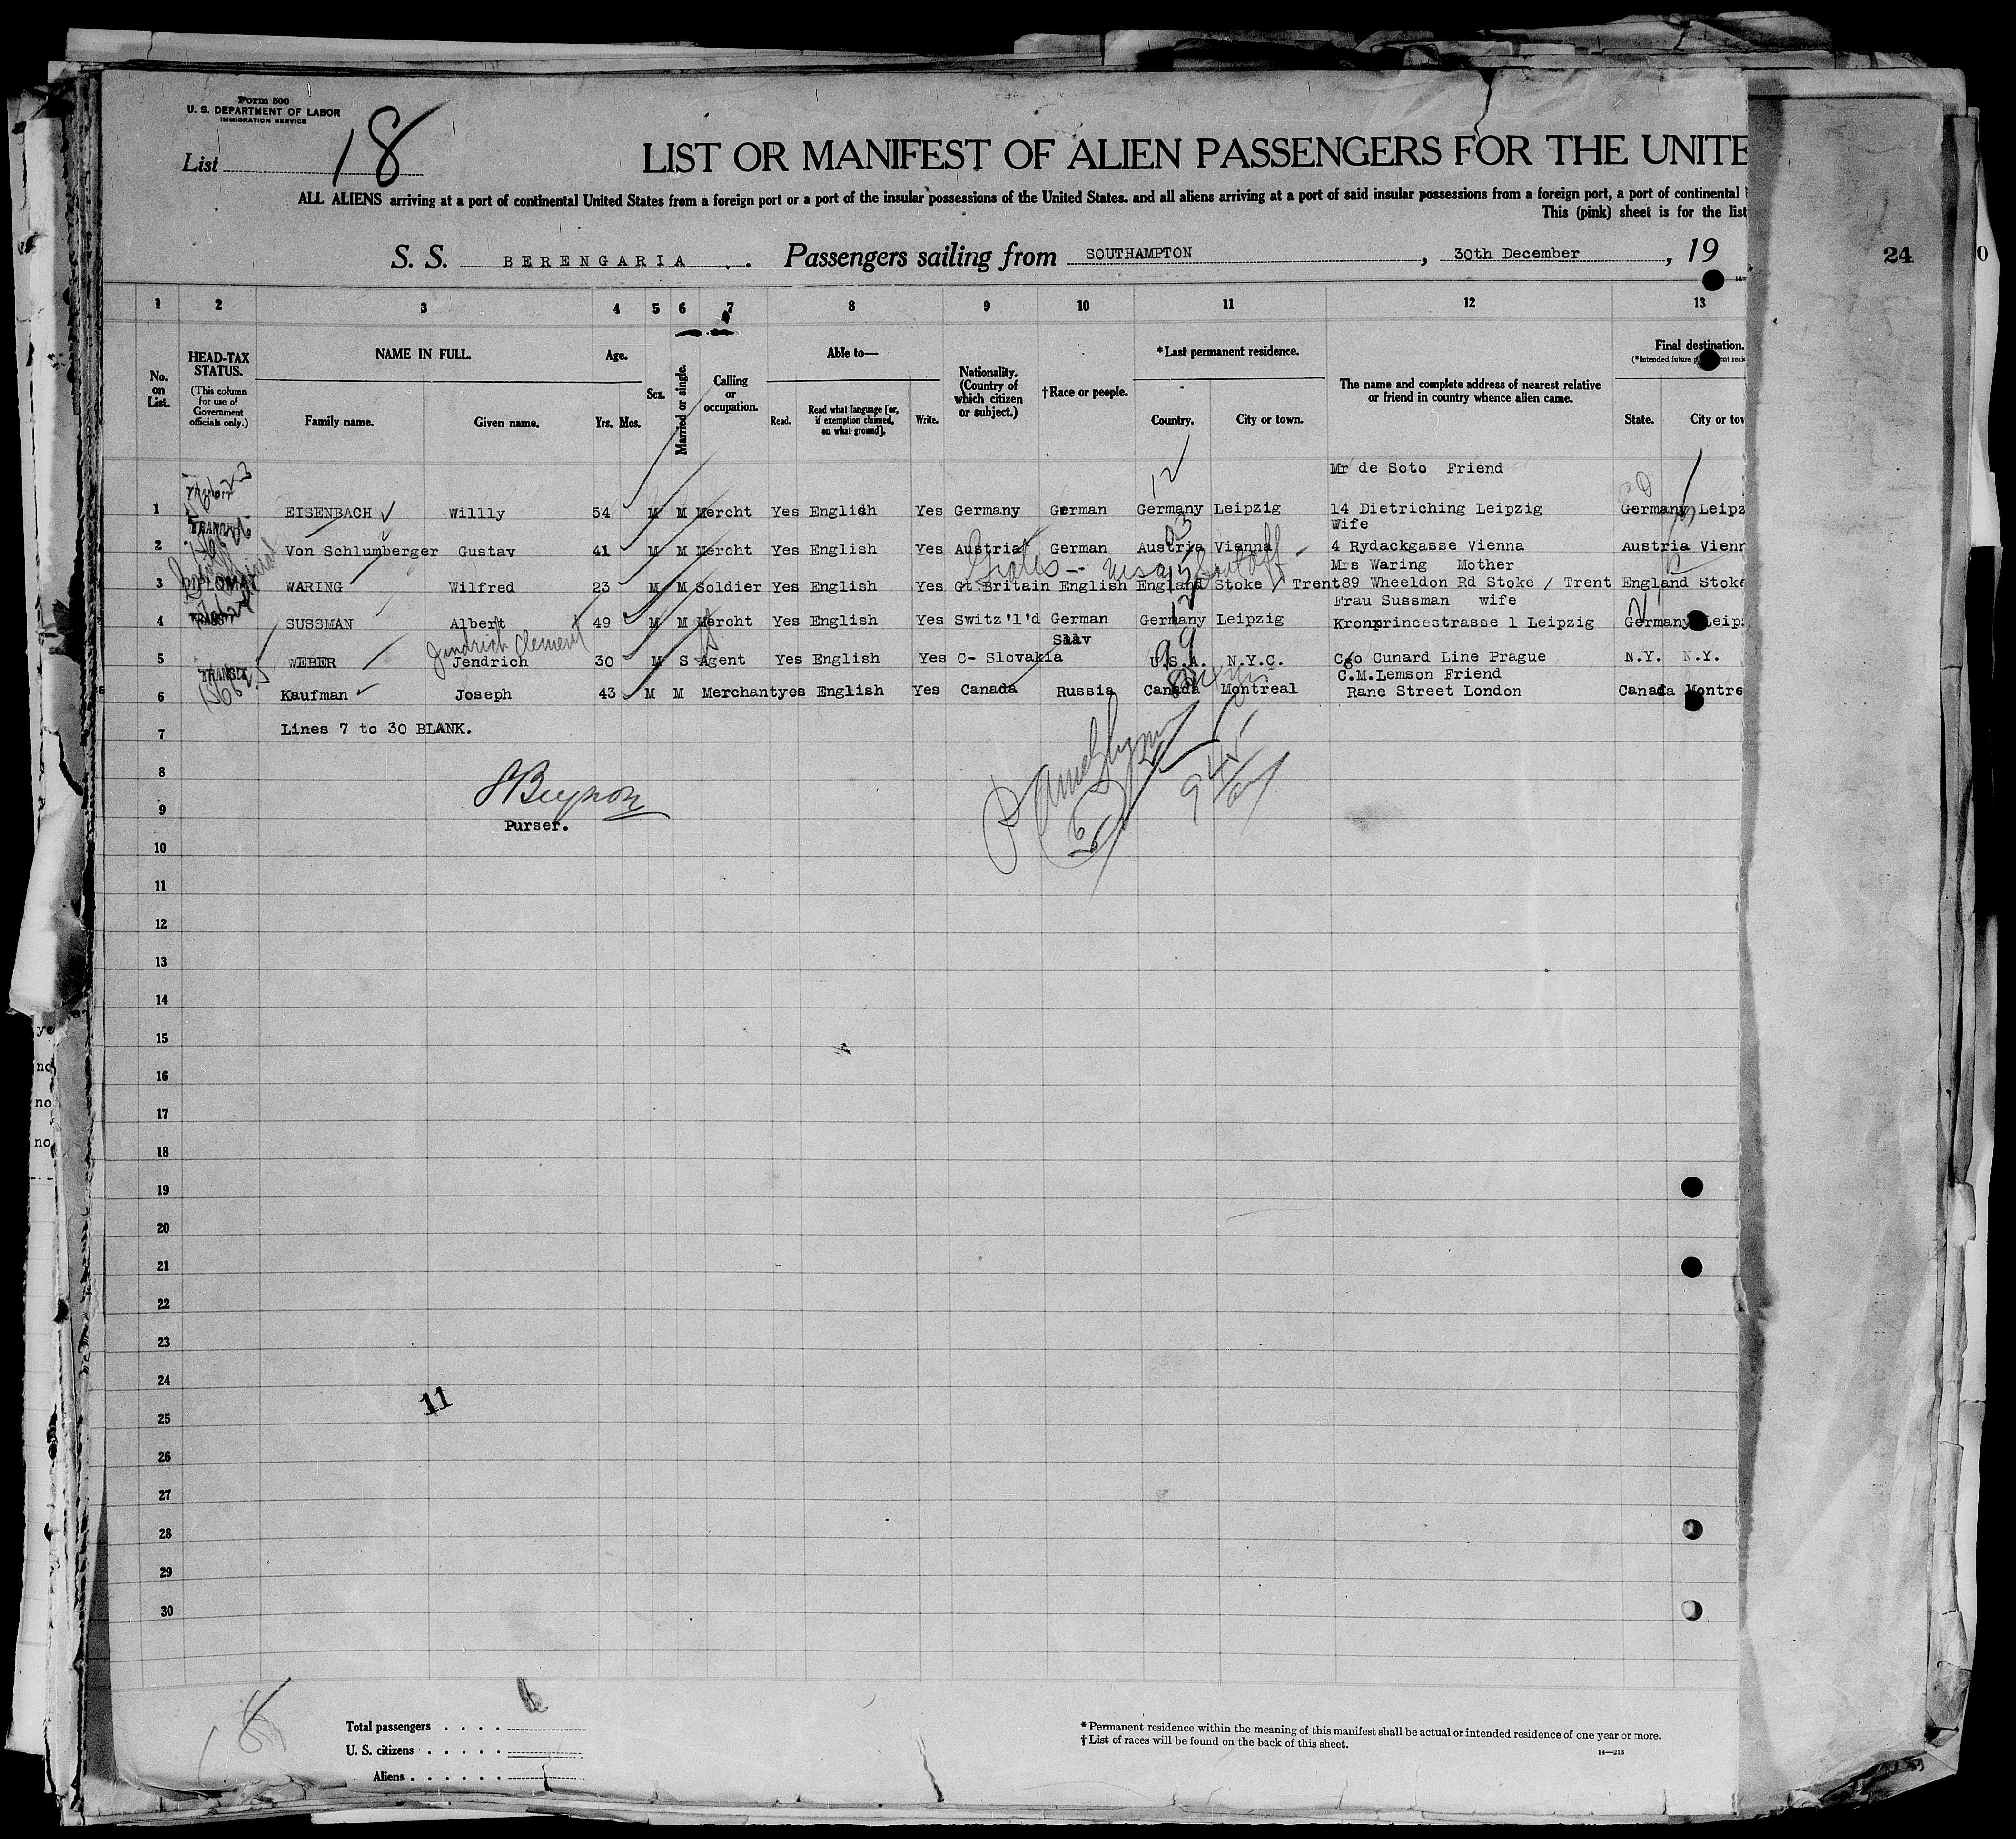 Form 500
U. S. DEPARTMENT OF LABOR
IMMIGRATION SERVICE
List 18
LIST OR MANIFEST OF ALIEN PASSENGERS FOR THE UNITE
ALL ALIENS arriving at a port of continental United States from a foreign port or a port of the insular possessions of the United States. and all aliens arriving at a port of said insular possessions from a foreign port, a port of continental
This (pink) sheet is for the list
S. S. BERENGARIA . Passengers sailing from SOUTHAMPTON , 30th December , 19
24
1 2 3 4 5 6 7 8 9 10 11 12 13
No. on List.
HEAD-TAX STATUS.
(This column for use of Government officials only.)
NAME IN FULL.
Family name. Given name.
Age.
Yrs. Mos.
Sex.
Married or single.
Calling or occupation.
Able to—
Read. Read what language [or, if exemption claimed, on what ground]. Write.
Nationality. (Country of which citizen or subject.)
†Race or people.
*Last permanent residence.
Country. City or town.
The name and complete address of nearest relative or friend in country whence alien came.
Final destination.
State. City or tow
Mr de Soto Friend
12
1 EISENBACH Willly 54 M M Mercht Yes English Yes Germany German Germany Leipzig 14 Dietriching Leipzig Germany Leipz
TRANSIT Wife
2 Von Schlumberger Gustav 41 M M Mercht Yes English Yes Austria German Austria Vienna 4 Rydackgasse Vienna Austria Vienn
Mrs Waring Mother
3 DIPLOMAT WARING Wilfred 23 M M Soldier Yes English Yes Gt Britain English England Stoke / Trent 89 Wheeldon Rd Stoke / Trent England Stoke
Frau Sussman wife
4 SUSSMAN Albert 49 M M Mercht Yes English Yes Switz'l'd German Germany Leipzig Kronprincestrasse 1 Leipzig Germany Leip
Jendrich Clement Slav 99
5 WEBER Jendrich 30 M S Agent Yes English Yes C- Slovakia U.S.A. N.Y.C. C/o Cunard Line Prague N.Y. N.Y.
TRANSIT C.M.Lemson Friend
6 Kaufman Joseph 43 M M Merchant yes English Yes Canada Russia Canada Montreal Rane Street London Canada Montre
7 Lines 7 to 30 BLANK.
8
9
Purser.
10
11
12
13
14
15
16
17
18
19
20
21
22
23
24
11
25
26
27
28
29
30
Total passengers 6
U. S. citizens
Aliens
* Permanent residence within the meaning of this manifest shall be actual or intended residence of one year or more.
† List of races will be found on the back of this sheet.
14—213
no
no